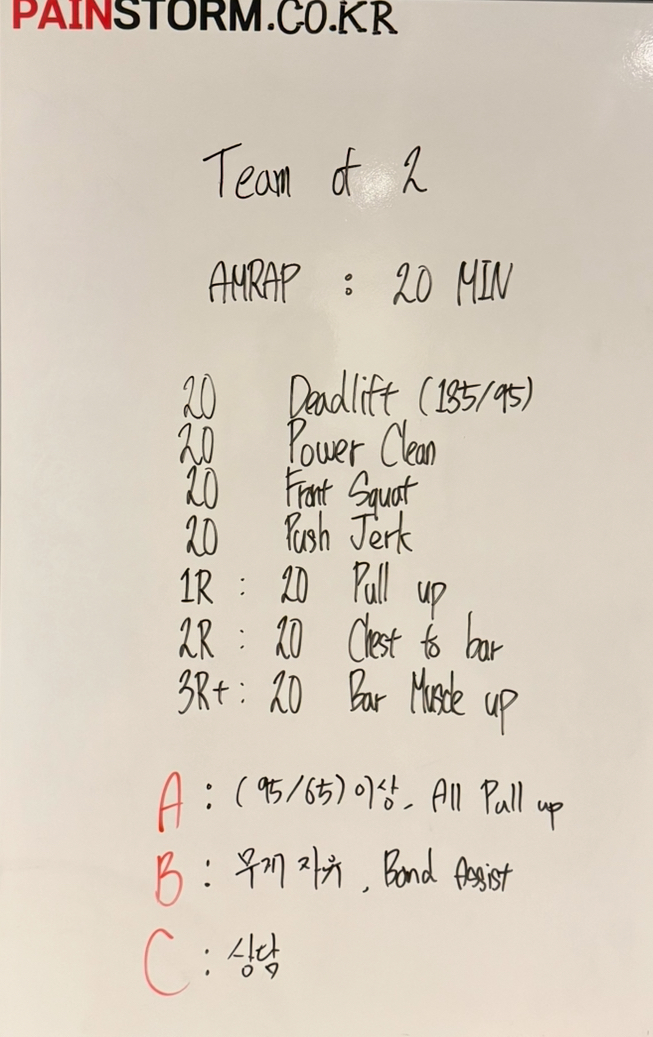 PAINSTORM.CO.KR
Team of 2
AMRAP : 20 MIN
20 Deadlift (135/95)
20 Power Clean
20 Front Squat
20 Push Jerk
1R : 20 Pull up
2R : 20 Chest to bar
3R+ : 20 Bar Muscle up
A : (95/65) 이상, All Pull up
B : 무게 자유, Band Assist
C : 상담